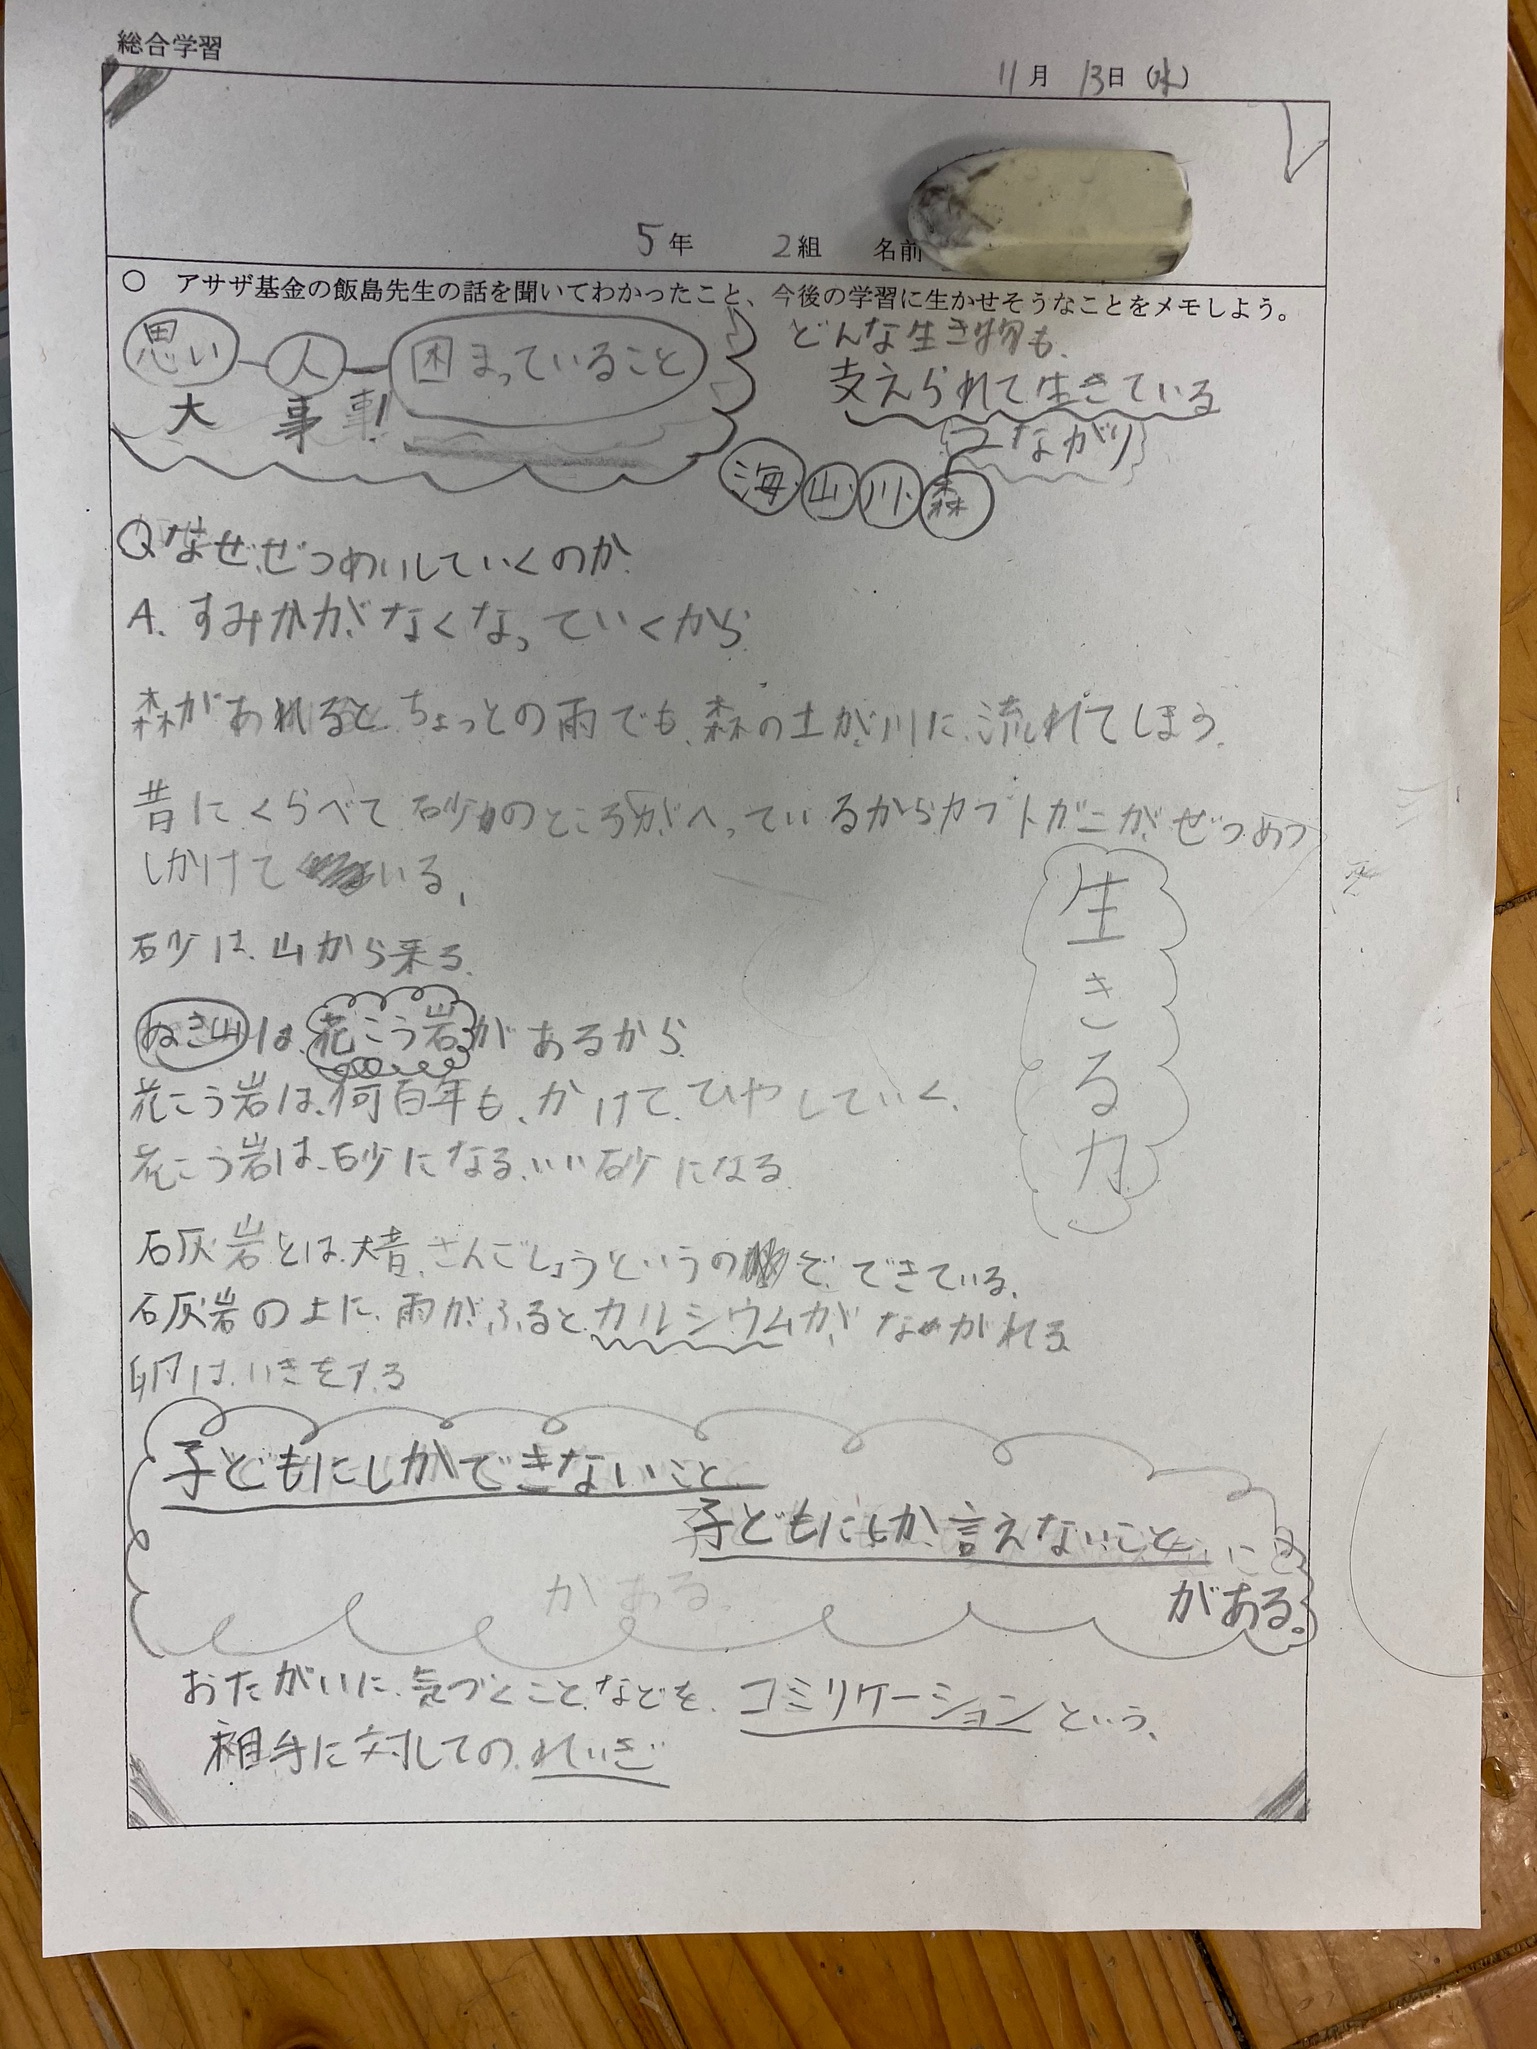 総合学習
11月 13日(水)
5年 2組 名前
○ アサザ基金の飯島先生の話を聞いてわかったこと、今後の学習に生かせそうなことをメモしよう。
思い 人 困まっていること
大事事!
どんな生き物も、
支えられて生きている
つながり
海 山 川 森
Qなぜ、ぜつめいしていくのか
A. すみかが、なくなっていくから
森があれると、ちょっとの雨でも、森の土が、川に、流れてしまう、
昔にくらべて砂のところがへっているからカブトガニが、ぜつめつ
しかけている、
砂は、山から来る、
ぬき山は、花こう岩があるから、
花こう岩は、何百年も、かけて、ひやしていく、
花こう岩は、砂になる、いい砂になる
石灰岩とは、大昔、さんごしょうというので、できている、
石灰岩の上に、雨が、ふると、カルシウムが、ながれる
卵は、いきをする
生きる力
子どもにしかできないこと、
子どもにしか、言えないこと
がある。
がある。
おたがいに、気づくこと、などを、コミリケーションという、
相手に対しての、れいぎ